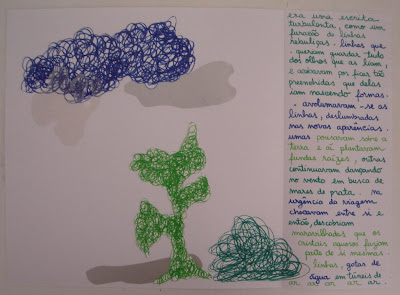 era uma escrita
turbulenta, como um
furacão de linhas
rebuliças. linhas que
queriam guardar tudo
dos olhos que as liam,
e acabaram por ficar tão
preenchidas que delas
iam nascendo formas.
. avolumavam-se as
linhas, deslumbradas
nas novas aparências.
umas pousavam sobre a
terra e aí plantavam
fundas raízes, outras
continuavam dançando
no vento em busca de
mares de prata. na
urgência da viagem
chocavam entre si e
então, descobriam
maravilhadas que os
cristais aquosos faziam
parte de si mesmas.
linhas, gotas de
água em túneis de
ar ar ar ar ar.